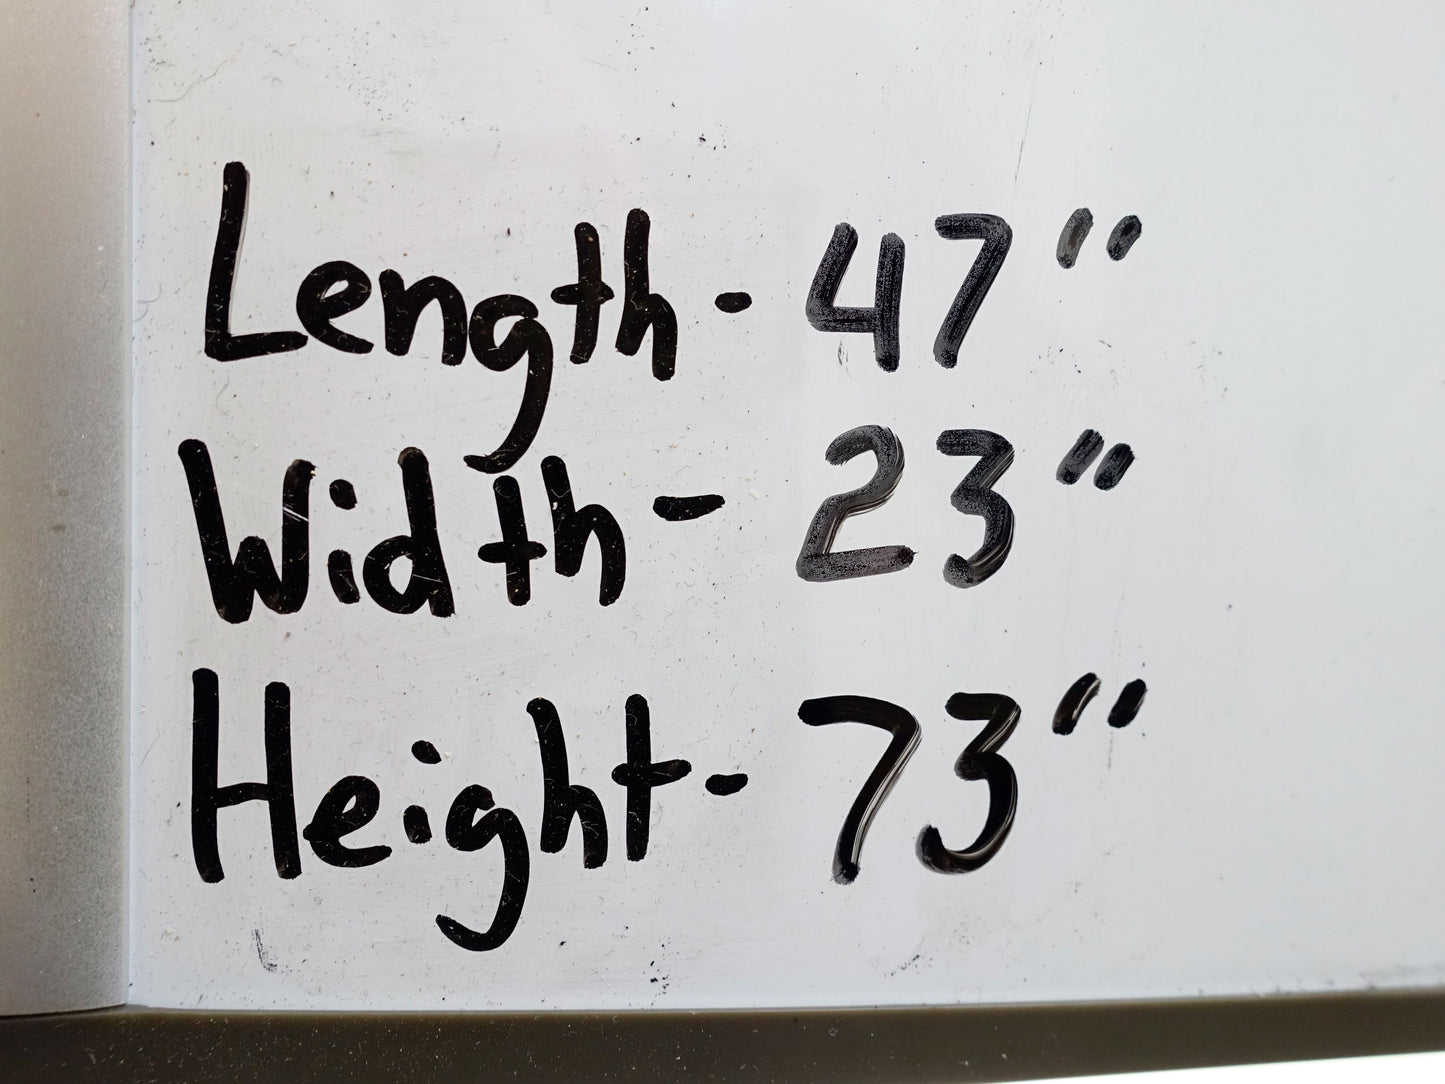 Length - 47"
Width - 23"
Height - 73"